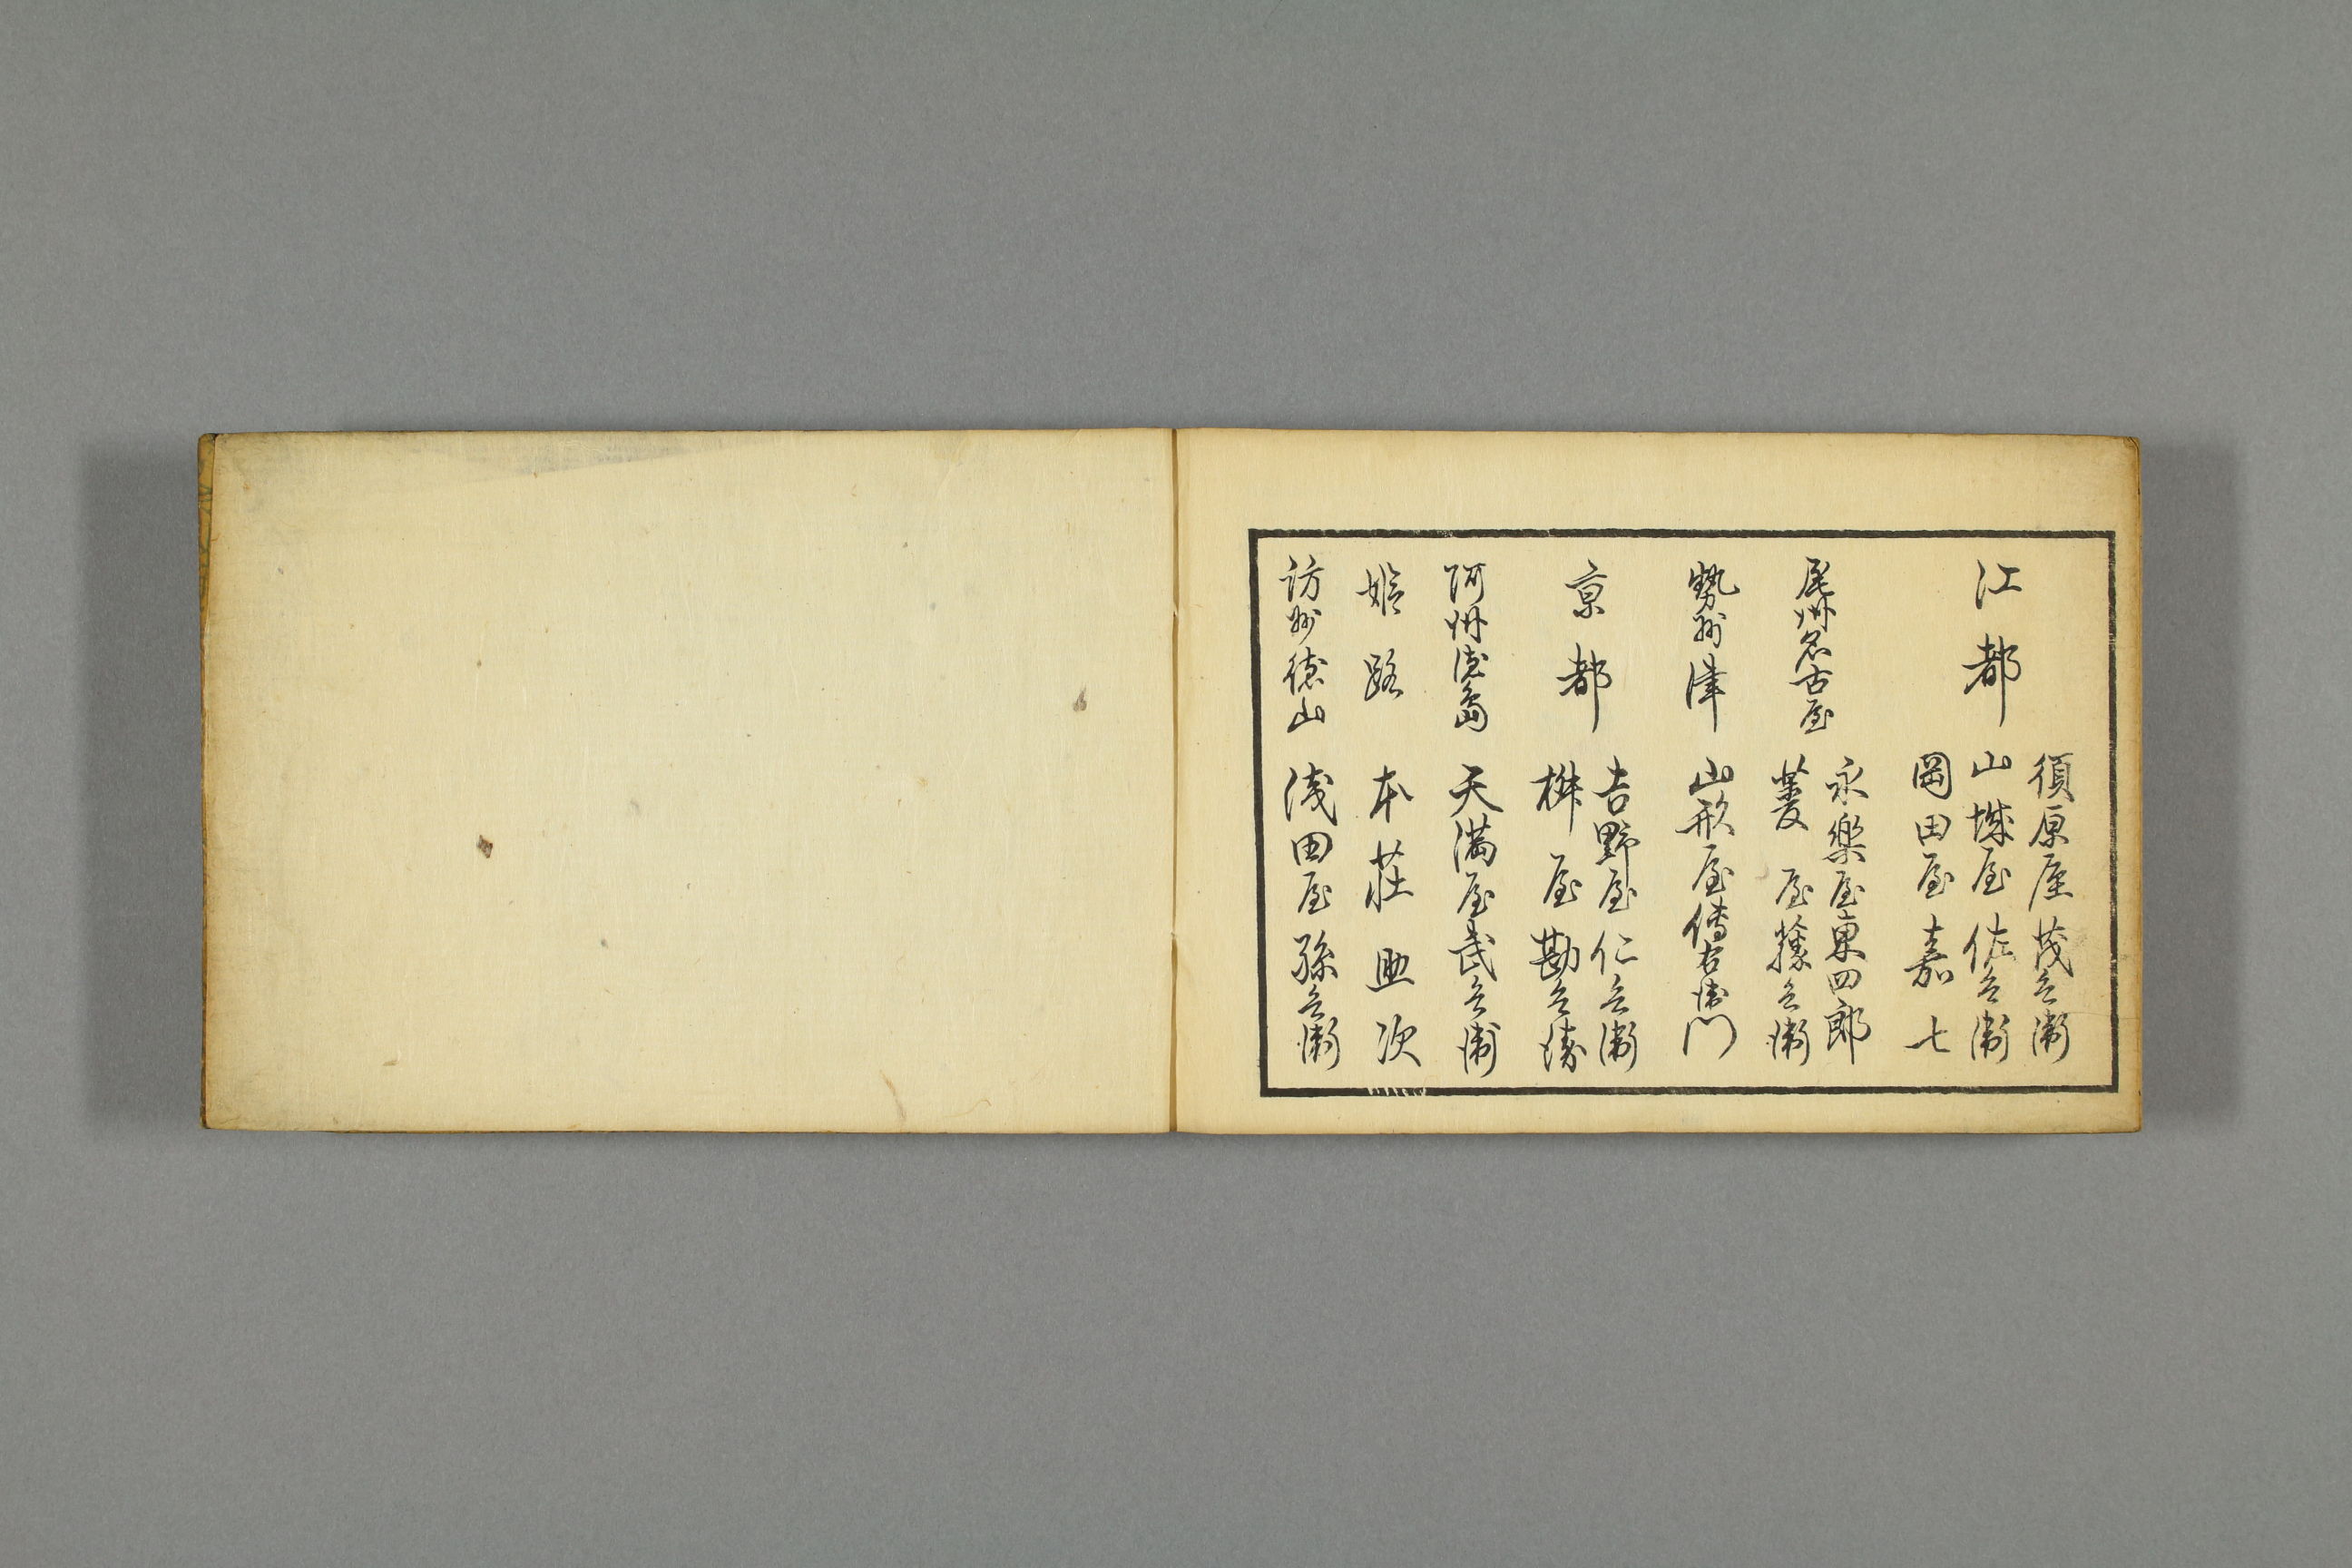 江都
須原屋茂兵衛
山城屋佐兵衛
岡田屋嘉七
尾州名古屋
永樂屋東四郎
菱屋藤兵衛
勢州津
山形屋傳右衛門
京都
吉野屋仁兵衛
桝屋勘兵衛
阿州徳島
天満屋武兵衛
姫路
本荘輿次
防州徳山
浅田屋孫兵衛